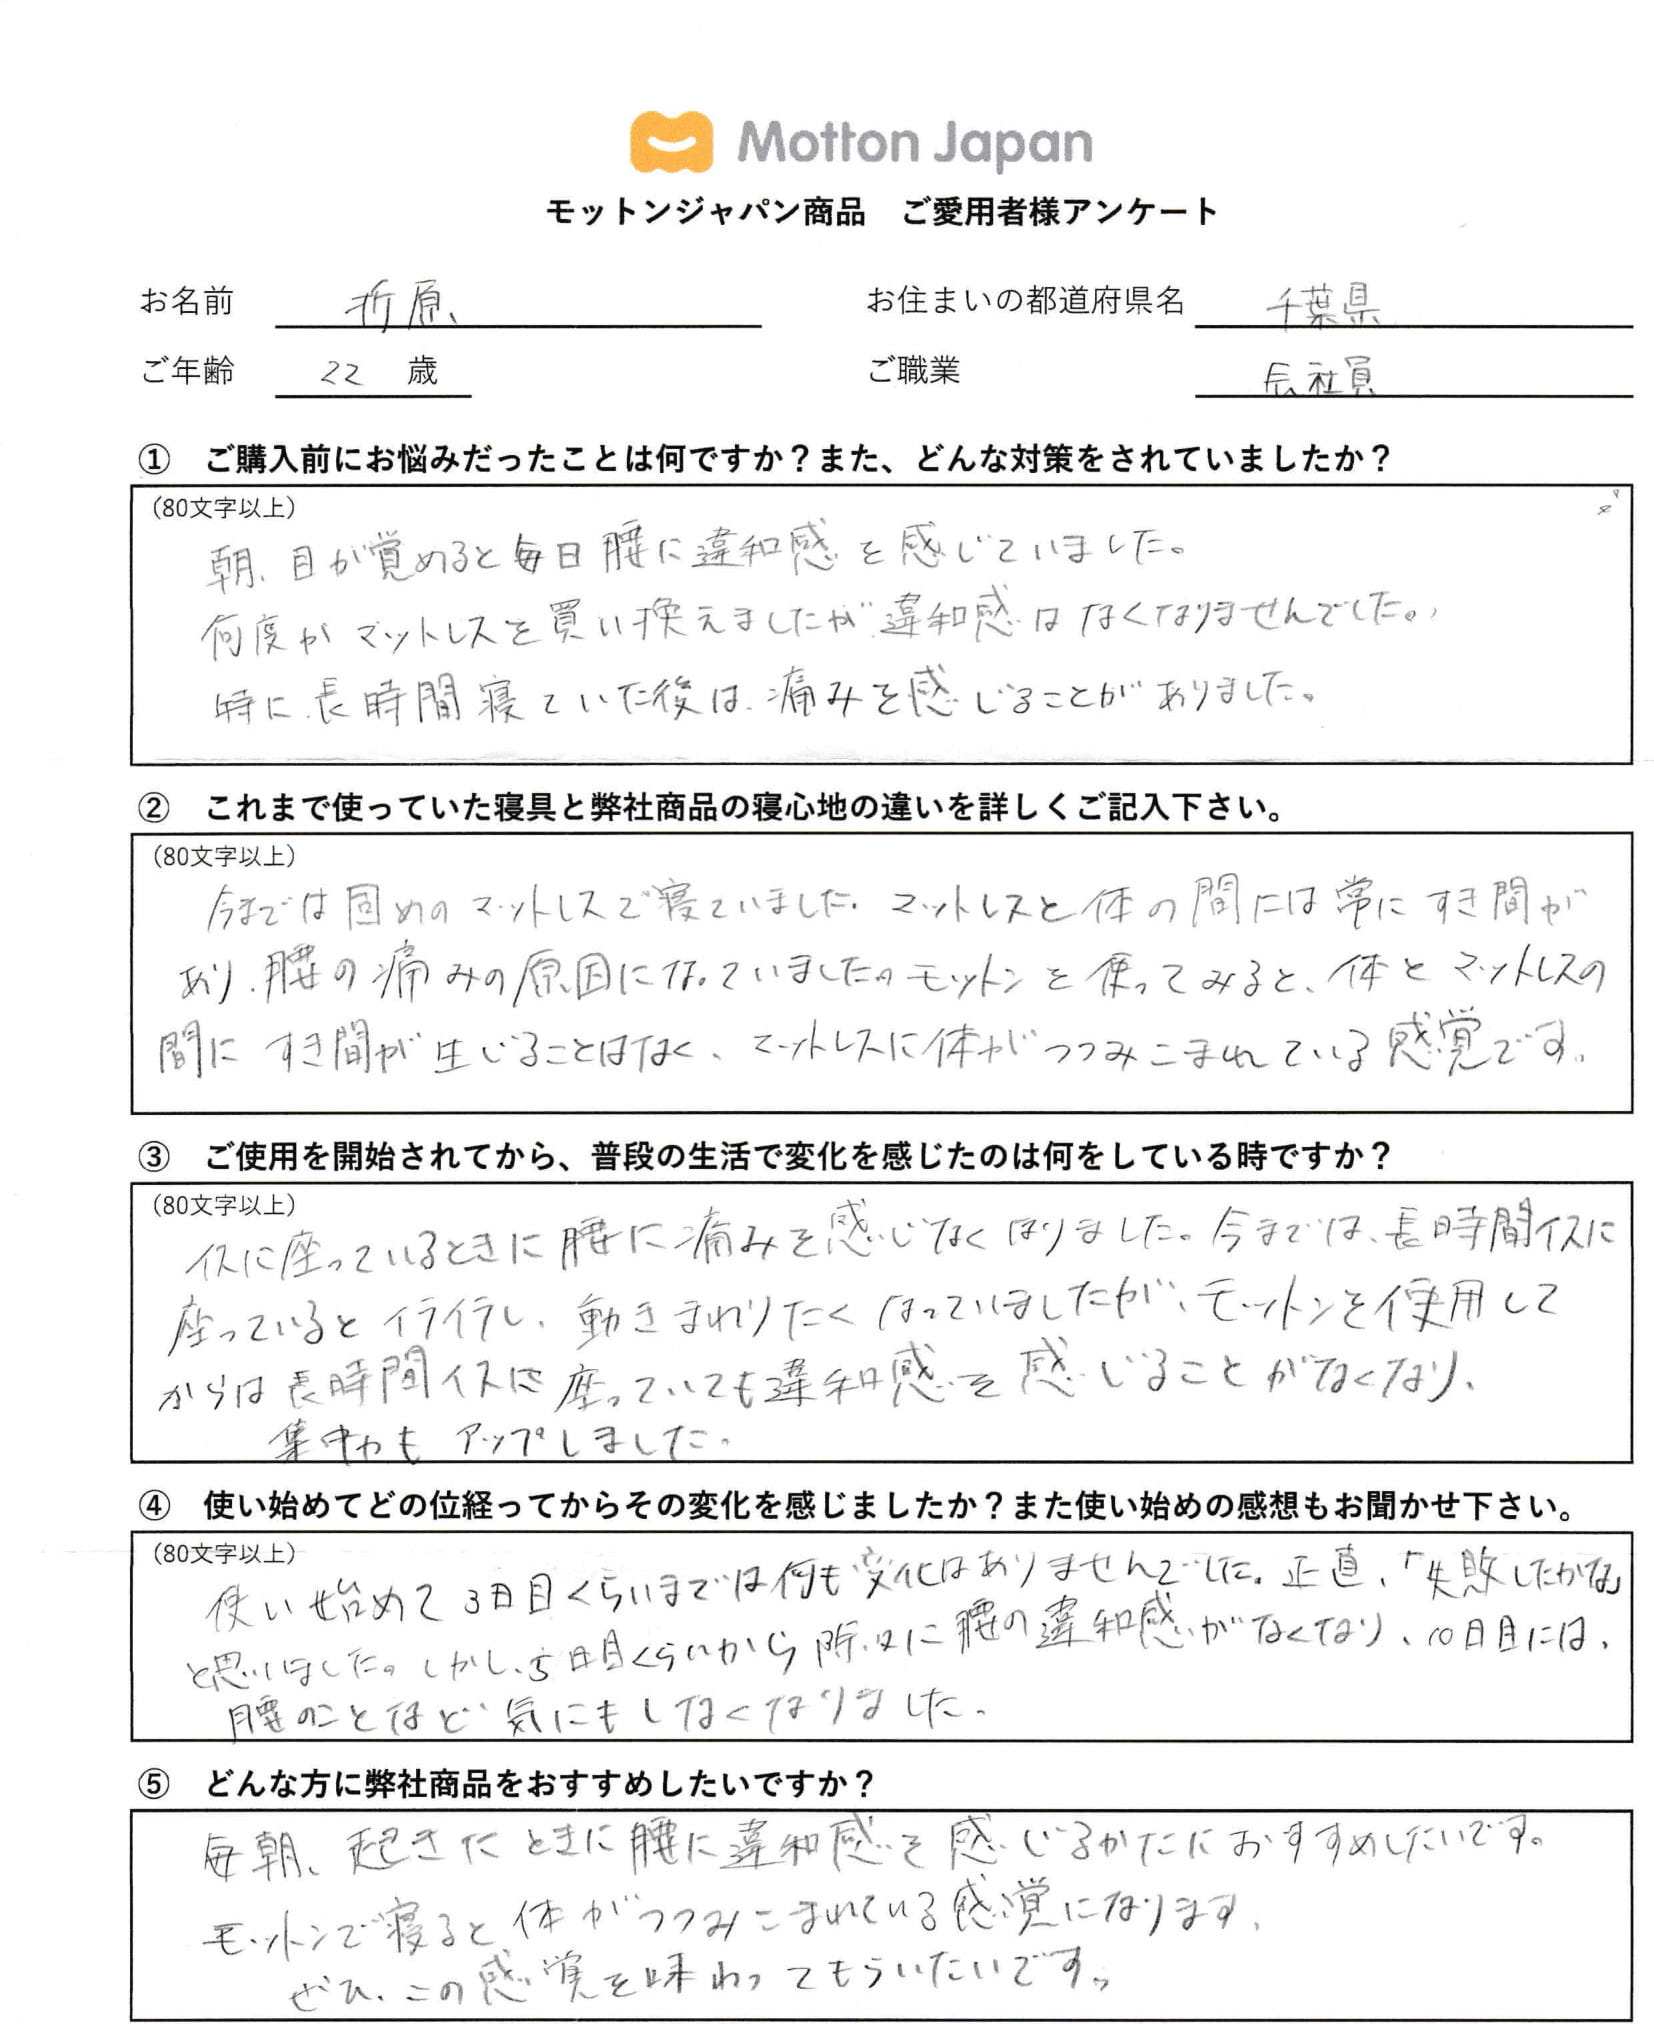 Motton Japan
モットンジャパン商品 ご愛用者様アンケート
お名前 折原 お住まいの都道府県名 千葉県
ご年齢 22 歳 ご職業 会社員
① ご購入前にお悩みだったことは何ですか？また、どんな対策をされていましたか？
（80文字以上）
朝、目が覚めると毎日腰に違和感を感じていました。
何度かマットレスを買い換えましたが違和感はなくなりませんでした。
特に、長時間寝ていた後は、痛みを感じることがありました。
② これまで使っていた寝具と弊社商品の寝心地の違いを詳しくご記入下さい。
（80文字以上）
今までは固めのマットレスで寝ていました。マットレスと体の間には常にすき間が
あり、腰の痛みの原因になっていました。モットンを使ってみると、体とマットレスの
間にすき間が生じることはなく、マットレスに体がつつみこまれている感覚です。
③ ご使用を開始されてから、普段の生活で変化を感じたのは何をしている時ですか？
（80文字以上）
イスに座っているときに腰に痛みを感じなくなりました。今までは、長時間イスに
座っているとイライラし、動きまわりたくなっていましたが、モットンを使用して
からは長時間イスに座っていても違和感を感じることがなくなり、
集中力もアップしました。
④ 使い始めてどの位経ってからその変化を感じましたか？また使い始めの感想もお聞かせ下さい。
（80文字以上）
使い始めて3日目くらいまでは何も変化はありませんでした。正直、「失敗したかな」
と思いました。しかし、5日目くらいから除々に腰の違和感がなくなり、10日目には、
腰のことなど気にもしなくなりました。
⑤ どんな方に弊社商品をおすすめしたいですか？
毎朝、起きたときに腰に違和感を感じるかたにおすすめしたいです。
モットンで寝ると体がつつみこまれている感覚になります。
ぜひ、この感覚を味わってもらいたいです。